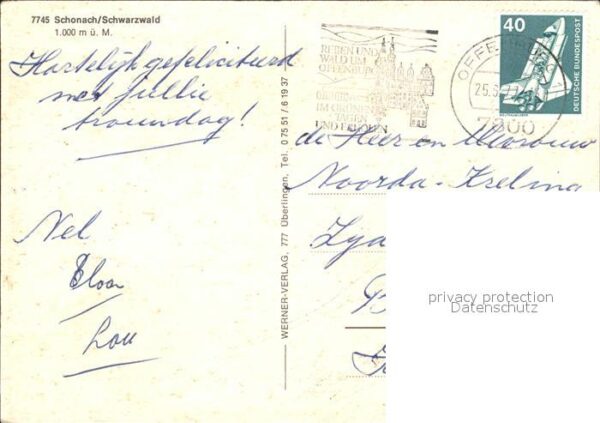 7745 Schonach/Schwarzwald
1.000 m ü. M.
Hartelijk gefeliciteerd
met jullie
trouwdag!
Nel
Lou
WERNER-VERLAG, 777 Überlingen, Tel. 0 75 51 / 6 19 37
REBEN UND
WALD UM
OFFENBURG
UND ERLEBEN
OFFENBURG
25.5.77
7600
40
DEUTSCHE BUNDESPOST
de Heer en Mevrouw
Noorda-Kreling
privacy protection
Datenschutz